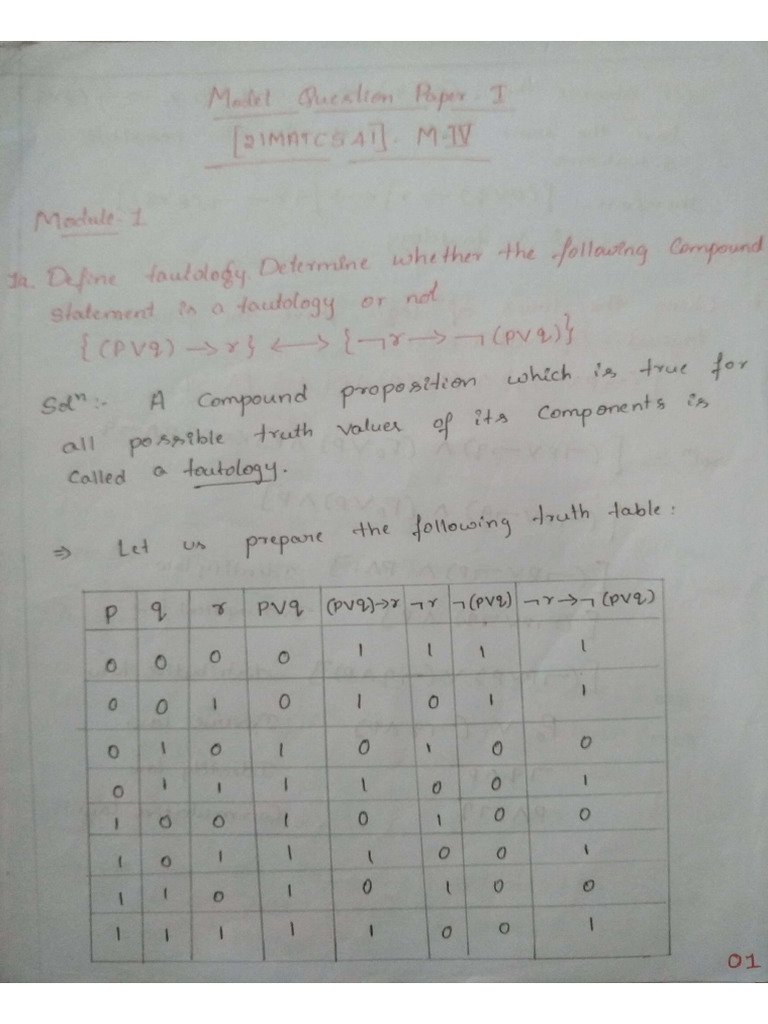 Model Question Paper. I
[21MATCS41]. M-IV
Module. 1
1a. Define tautology. Determine whether the following Compound
statement is a tautology or not
{(PVq) → r} ⟷ {¬r → ¬(PVq)}
Solⁿ:- A Compound proposition which is true for
all possible truth values of its Components is
Called a tautology.
⇒ Let us prepare the following truth table:
P q r PVq (PVq)→r ¬r ¬(PVq) ¬r→¬(PVq)
0 0 0 0 1 1 1 1
0 0 1 0 1 0 1 1
0 1 0 1 0 1 0 0
0 1 1 1 1 0 0 1
1 0 0 1 0 1 0 0
1 0 1 1 1 0 0 1
1 1 0 1 0 1 0 0
1 1 1 1 1 0 0 1
01